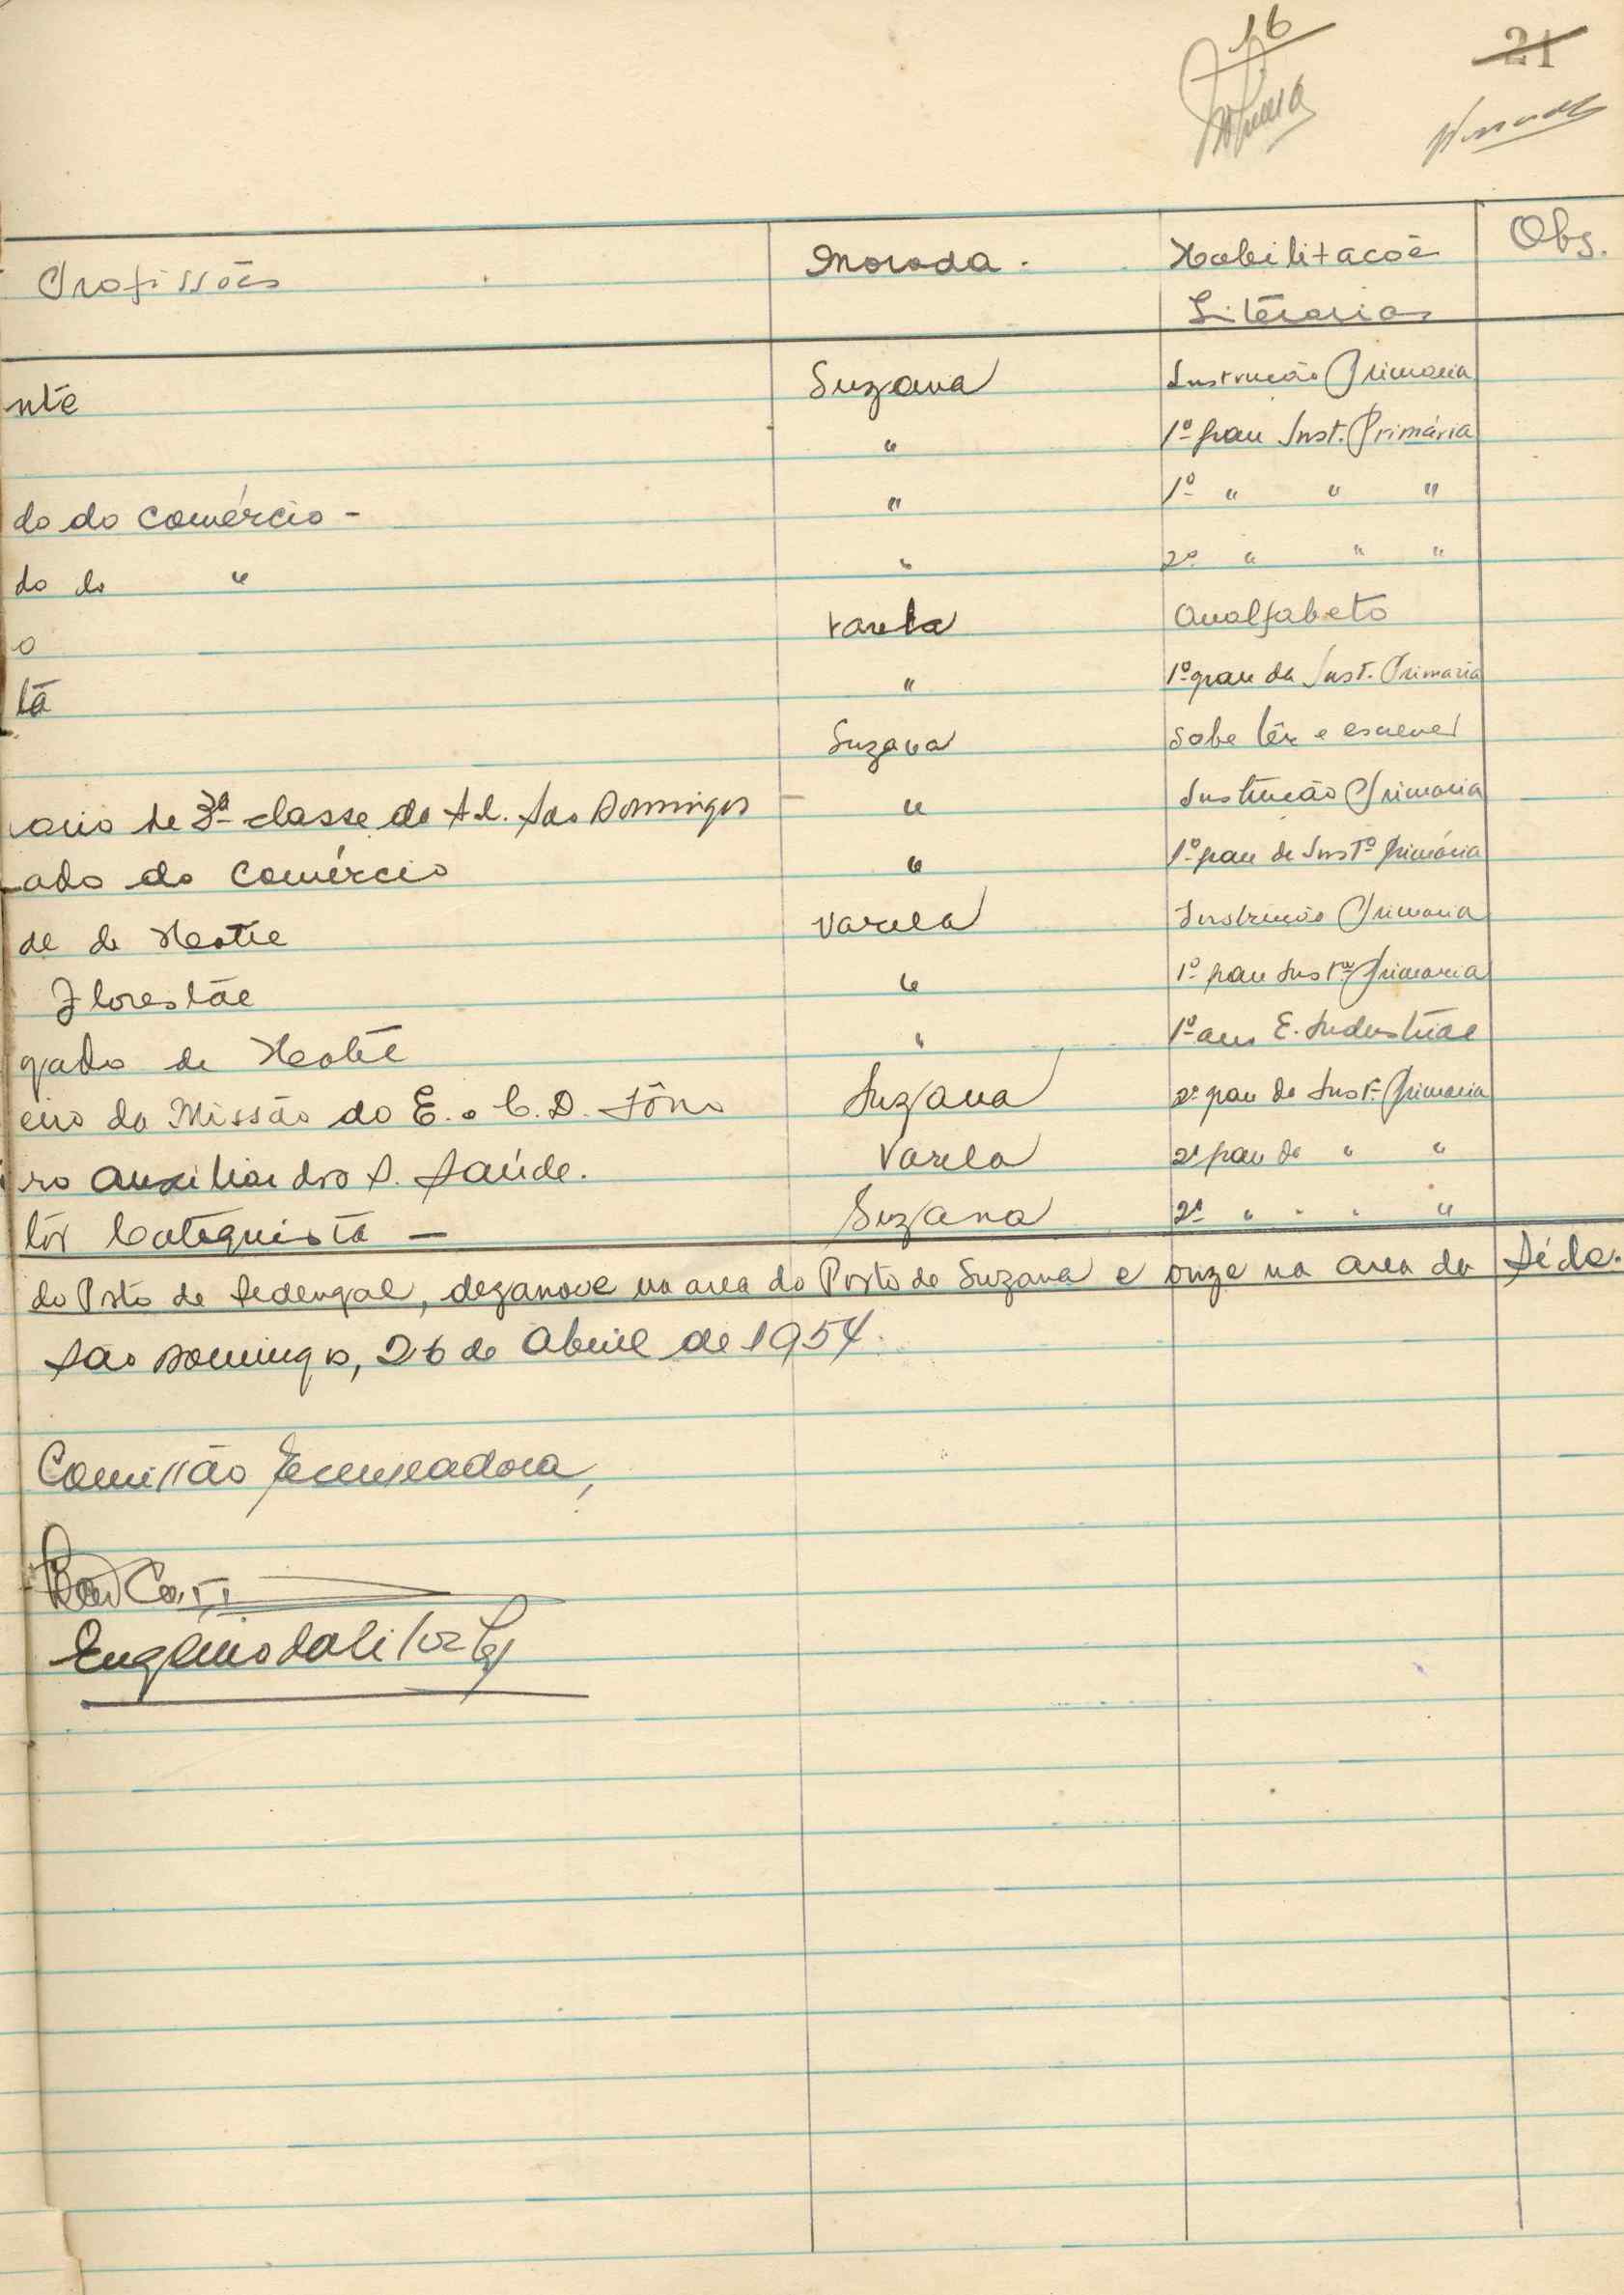 16
21
Profissões Morada. Habilitacoẽs Obs.
Literarias
nte Suzana Instrução Primaria
" 1º grau Inst. Primária
do do comércio - " 1º " " "
do do " " 2º " " "
o Varela Analfabeto
ta " 1º grau da Inst. Primaria
Suzana Sabe lêr e escrever
ario de 3ª classe do Ad. São Domingos " Instrução Primaria
ado do comércio " 1º grau de Instº Primária
de de Varela Instrução Primaria
Florestal " 1º grau Instª Primaria
gado de " 1º ano E. Industrial
eiro da Missão do E. e C. D. Sôno Suzana 2º grau da Inst. Primaria
ro auxiliar dos S. Saúde. Varela 2º grau da " "
tor Catequista — Suzana 2º " " " "
do Posto de Sedengal, dezanove na area do Posto de Suzana e onze na area da Séde.
São Domingos, 26 de Abril de 1954.
Comissão Recenseadora,
Eugénio